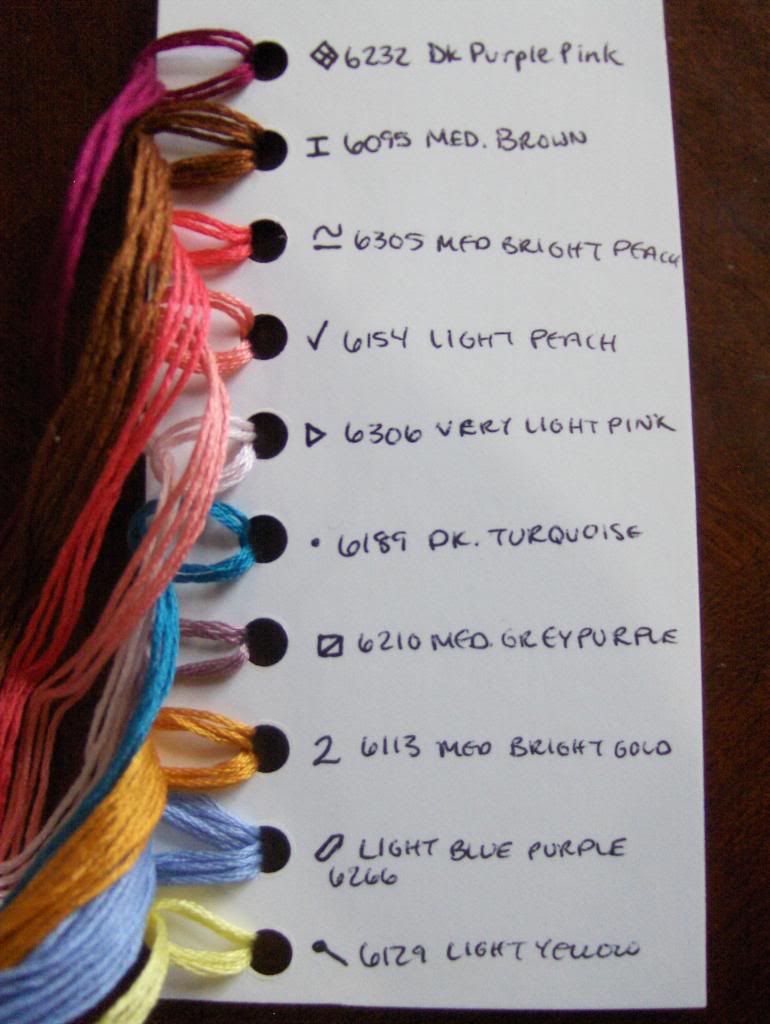 6232 Dk Purple Pink
I 6095 MED. BROWN
≃ 6305 MED BRIGHT PEACH
✓ 6154 LIGHT PEACH
▷ 6306 VERY LIGHT PINK
• 6189 DK. TURQUOISE
⧄ 6210 MED. GREY PURPLE
2 6113 MED BRIGHT GOLD
LIGHT BLUE PURPLE
6266
6129 LIGHT YELLOW